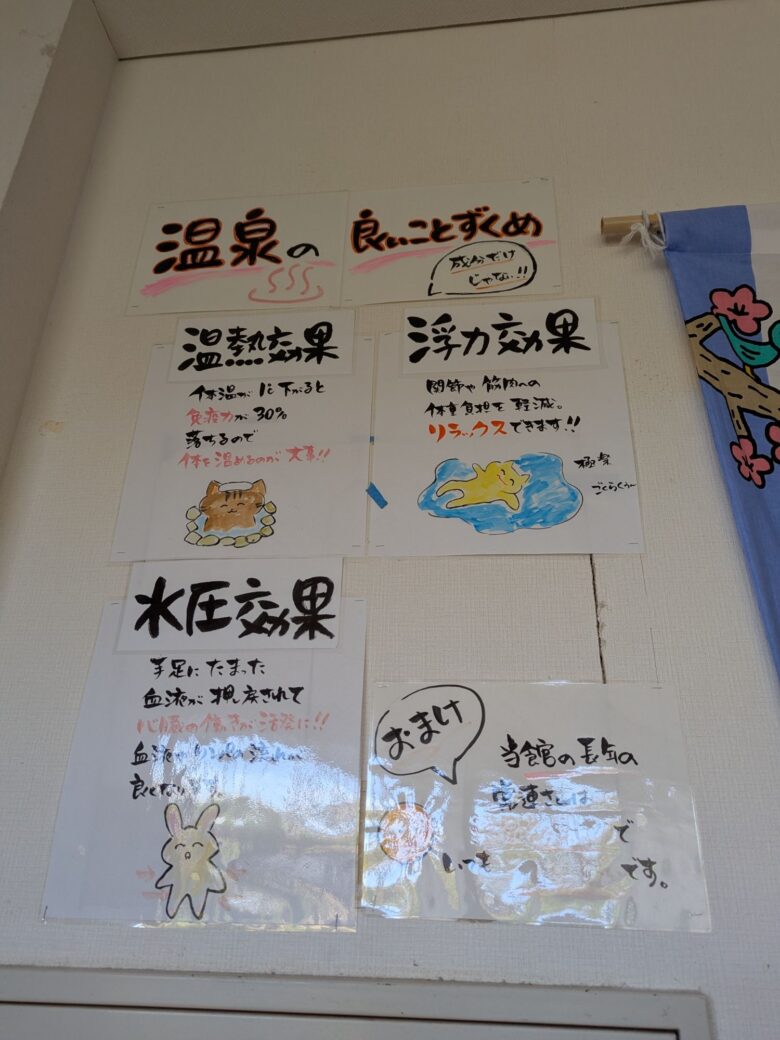 温泉の
良いことずくめ
成分だけ
じゃない!!
温熱効果
体温が1℃下がると
免疫力が30%
落ちるので
体を温めるのが大事!!
浮力効果
関節や筋肉への
体重負担を軽減。
リラックスできます!!
極楽
ごくらくぅ〜
水圧効果
手足にたまった
血液が押し戻されて
心臓の働きが活発に!!
血液やリンパの流れが
良くなります。
おまけ
当館の長年の
常連さんは
で
いつも
です。